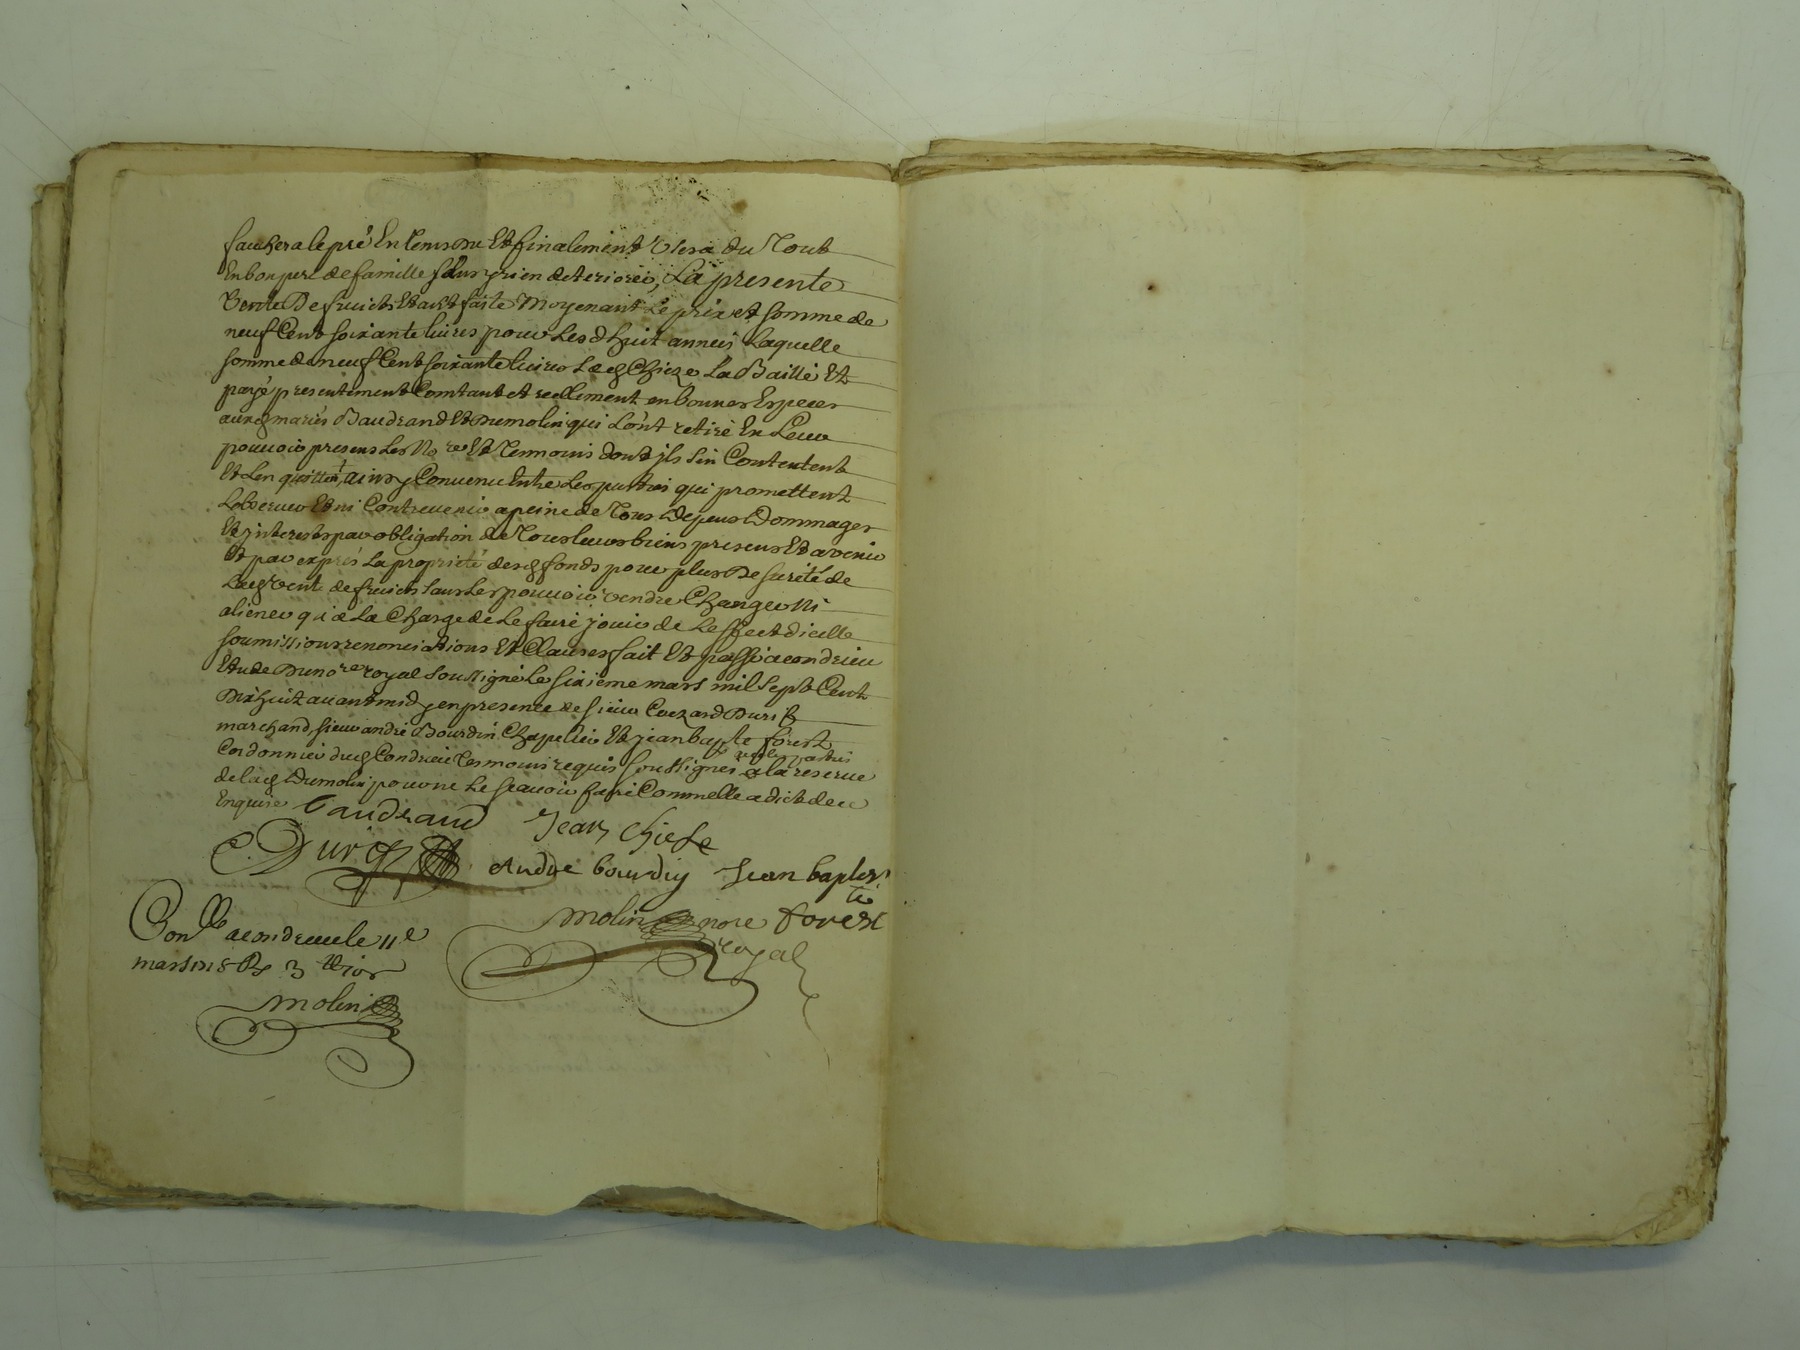 fauchera le pré En tems du Et finalement Usera du Tout
En bon pere de famille sans y rien deteriorer, La presente
Vente De fruicts Etant faite Moyenant Le prix et somme de
neuf Cent soixante livres pour Lesd huit annees Laquelle
somme de neuf Cent soixante livres Led Chieze La Baillé Et
payé presentement Comtant et reellement en bonnes Especes
auxd mariés Baudrand Et Dumolin qui Lont retiré En Leur
pouvoir presens Les No.re Et Temoins dont jls sin Contentent
Et Len quittent, ainsy Convenu Entre Les parties qui promettent
Lobserver Et ni Contrevenir a peine de Tous Depens Dommages
Et jnterests par obligation de Tous leurs biens presens Et avenir
Et par exprés La propriété desd fonds pour plus De sureté de
Lad Vente de fruicts sans Les pouvoir vendre Changer Ni
aliener qu a La Charge de Le faire jouir de Leffect dicelle
soumissions renonciations Et Clauses fait Et passé a condrieu
Etude Du no.re royal soussigné Le sixieme mars mil sept Cent
Dix huit avant midy en presence de sieur Cezard Durif
marchand, sieur andré Bourdin Chapellier Et jean bapte forest
Cordonnier dud Condrieu Temoins requis soussignés a la reserve
de lad Dumolin pour ne Le scavoir faire Comme elle a dict de ce
Enquise Baudrand Jean Chiese
Durif
Andre bourdin Jean baptes
te
molin nore forest
royal
Conlle a condrieu le 11e
mars 1718 R 3
molin